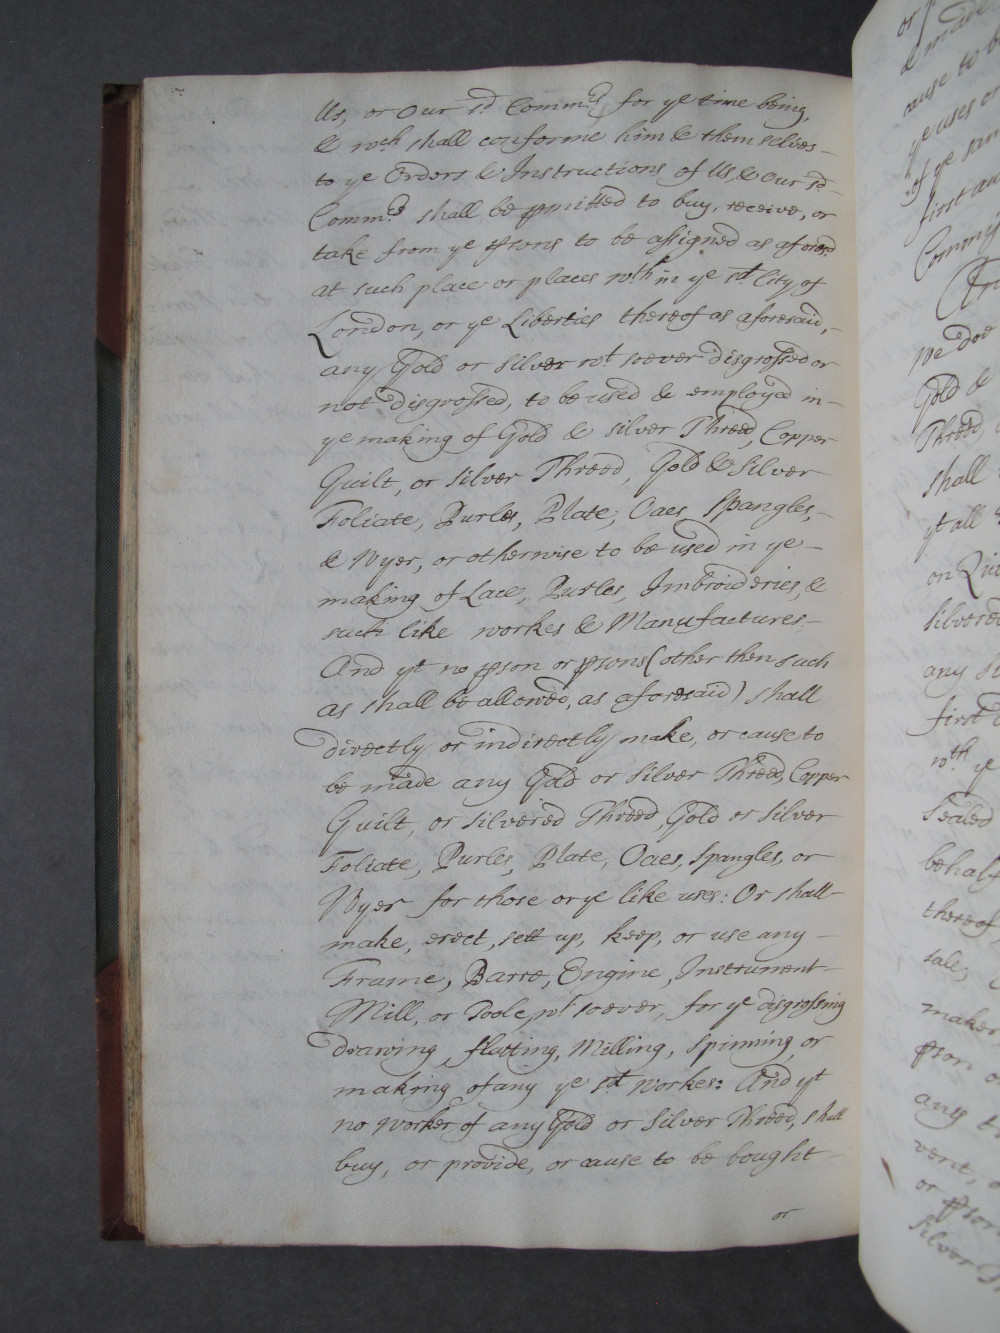 Us, or Our sd Commrs for ye time being,
& wch shall conforme him & themselves
to ye Orders & Instructions of Us, & Our sd
Commrs shall be pmitted to buy, receive, or
take from ye psons to be assigned as aforesd
at such place or places wth in ye sd City of
London, or ye Liberties thereof as aforesaid,
any Gold or Silver wt soever disgrossed or
not disgrossed, to be used & employed in
ye making of Gold & Silver Threed, Copper
Guilt, or Silver Threed, Gold & Silver
Foliate, Purles, Plate, Oaes Spangles,
& Wyer, or otherwise to be used in ye
making of Lace, Purles, Imbroideries, &
such like workes & Manufactures
And yt no pson or psons (other then such
as shall be allowed, as aforesaid) shall
directly or indirectly make, or cause to
be made any Gold or Silver Threed, Copper
Guilt, or Silvered Threed, Gold or Silver
Foliate, Purles, Plate, Oaes, Spangles, or
Wyer for those or ye like uses: Or shall
make, erect, sett up, keep, or use any
Frame, Barre, Engine, Instrument
Mill, or Toole, wt soever, for ye disgrossing
drawing, flatting, Milling, Spinning, or
making of any ye sd Workes: And yt
no worker of any Gold or Silver Threed, shall
buy, or provide, or cause to be bought
or
or
& made
cause to b
ye uses or
of ye sam
first au
Commis
We doe
Gold &
Threed,
shall
yt all
on
silvered
any
first
wth ye
Sealed
behalf
thereof
sale,
maker
pson o
any t
vent,
or pson
Silver